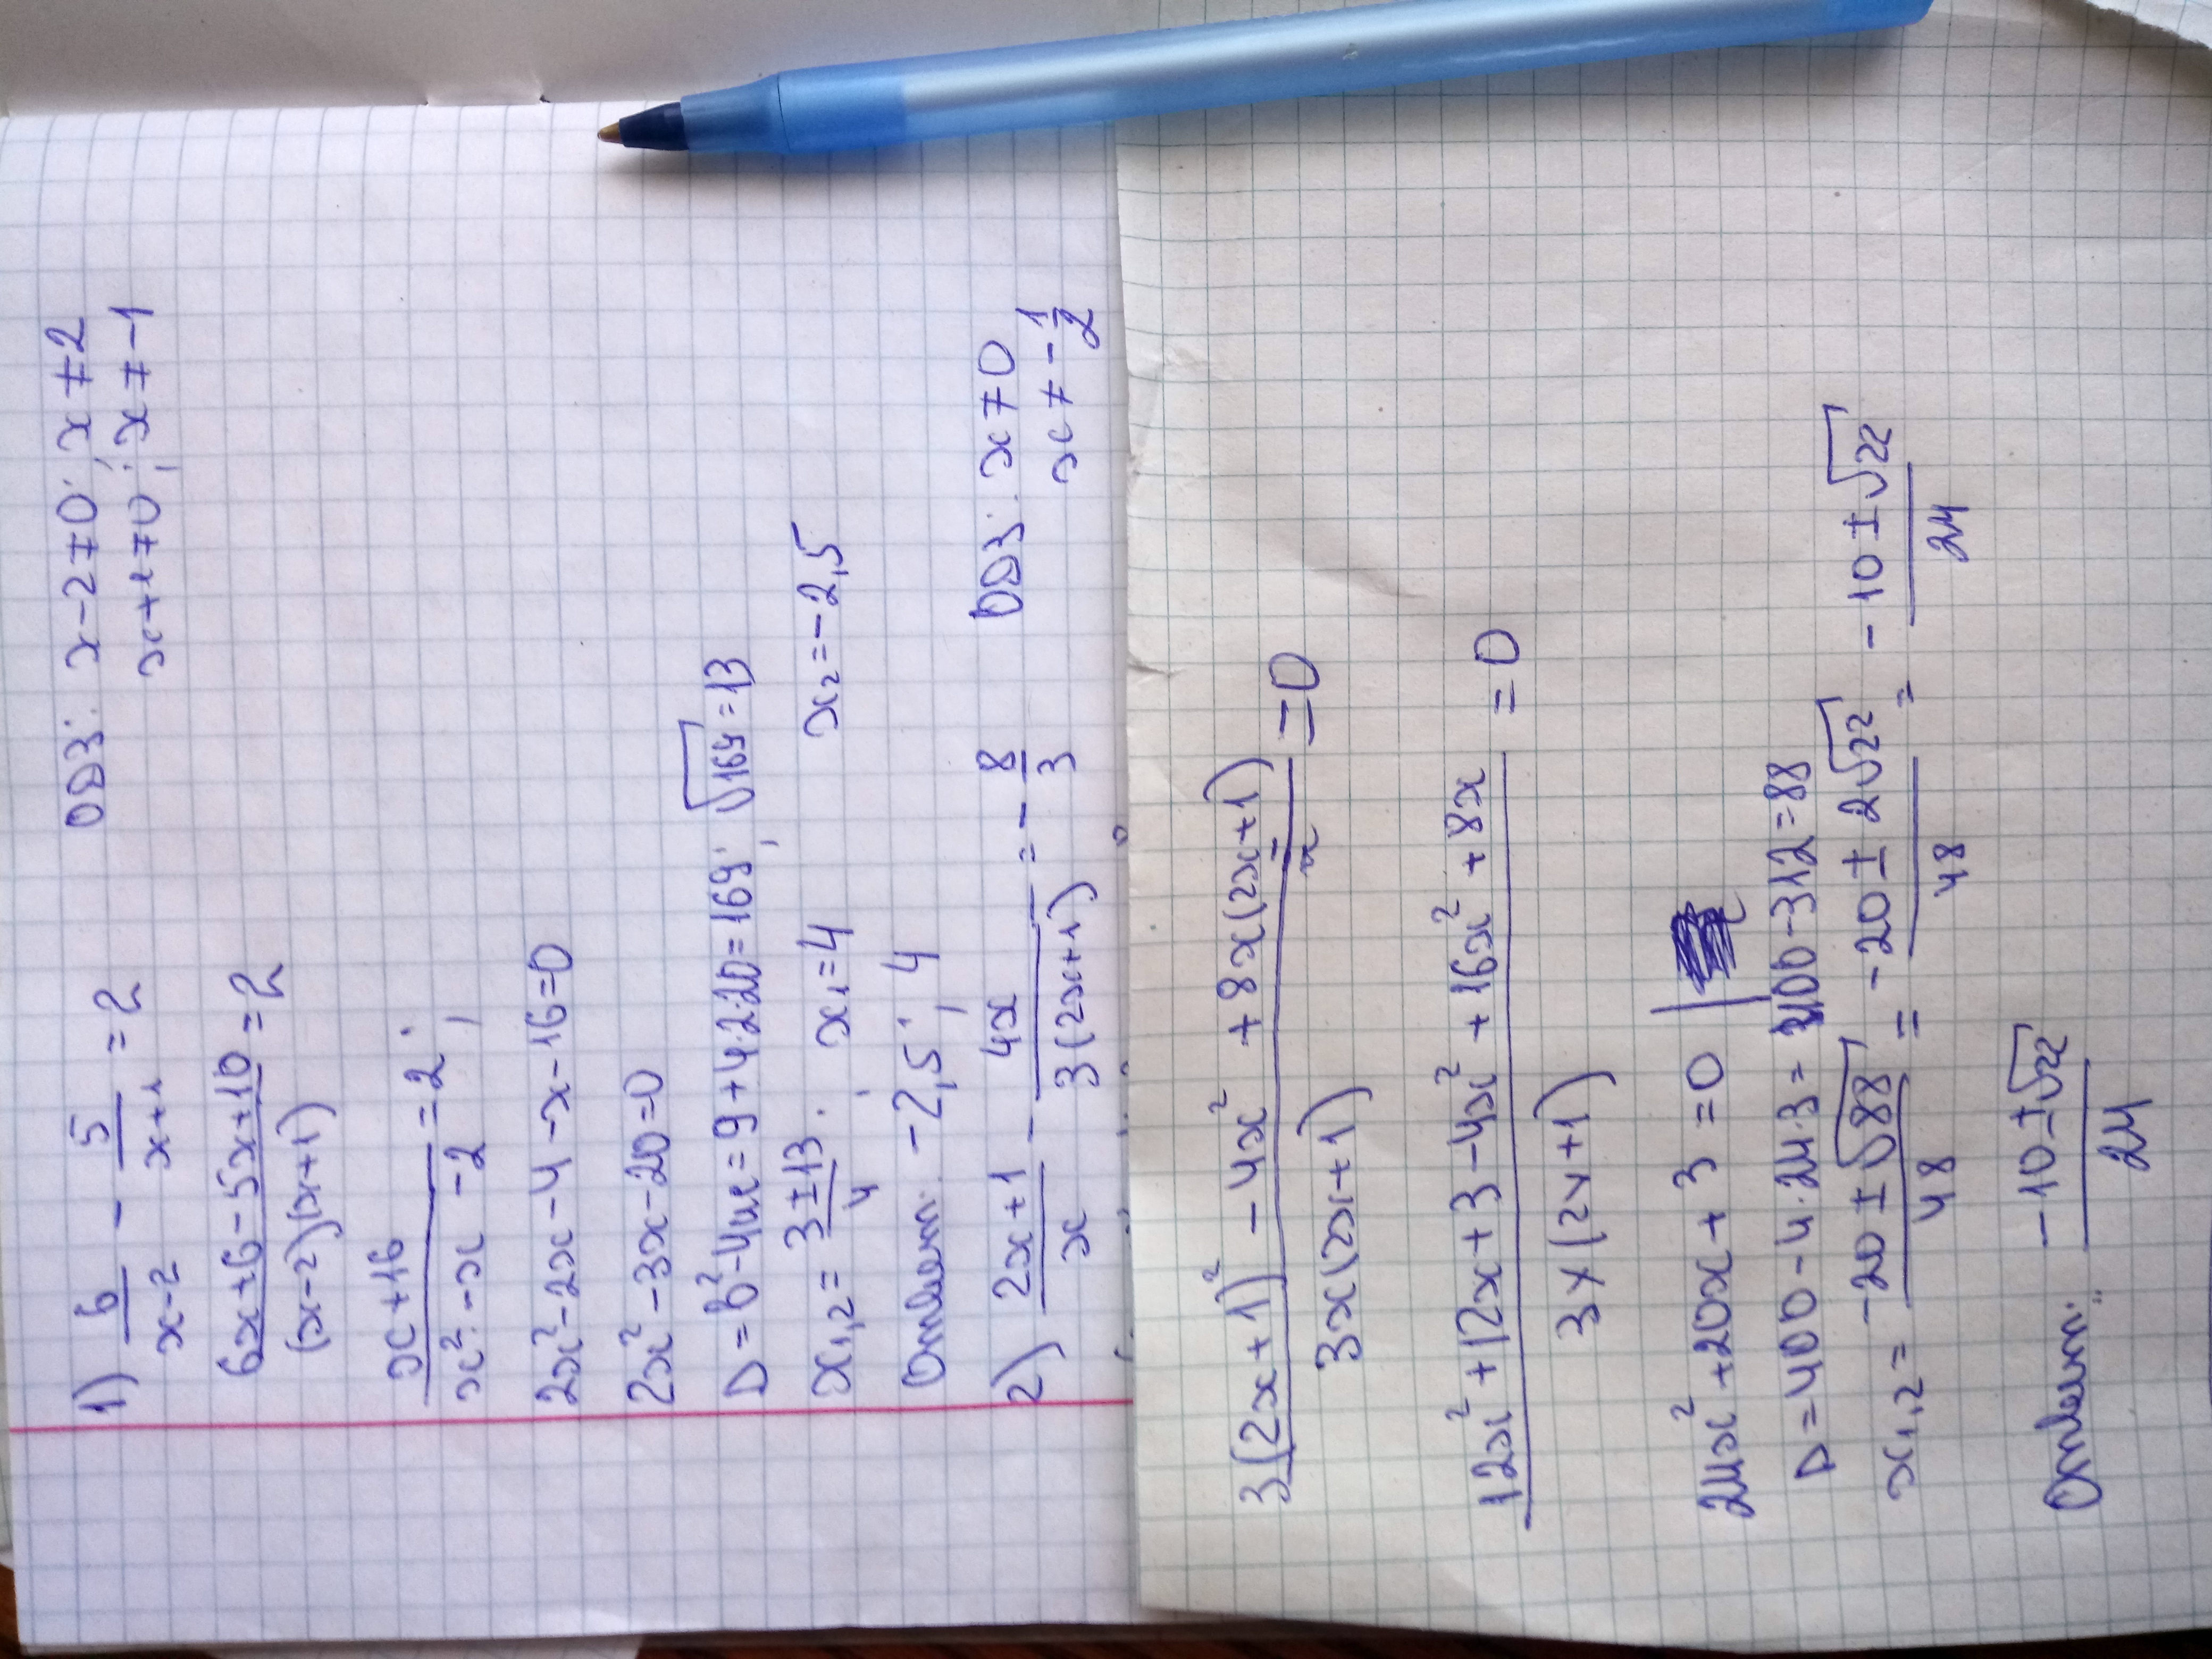 1) 6/(x-2) - 5/(x+1) = 2    ОДЗ: x-2≠0; x≠2
x+1≠0; x≠-1
(6x+6-5x+10)/((x-2)(x+1)) = 2
(x+16)/(x²-x-2) = 2;
2x²-2x-4-x-16=0
2x²-3x-20=0
D=b²-4ac=9+4·2·20=169; √169=13
x₁,₂ = (3±13)/4; x₁=4    x₂=-2,5
Ответ: -2,5; 4
2) (2x+1)/x - 4x/(3(2x+1)) = -8/3    ОДЗ: x≠0
x≠-1/2
(3(2x+1)² - 4x² + 8x(2x+1))/(3x(2x+1)) = 0
(12x²+12x+3-4x²+16x²+8x)/(3x(2x+1)) = 0
24x²+20x+3=0
D=400-4·24·3=400-312=88
x₁,₂ = (-20±√88)/48 = (-20±2√22)/48 = (-10±√22)/24
Ответ: (-10±√22)/24